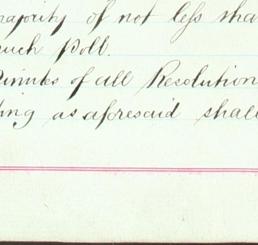 majority of not less sha
such Poll.
Minutes of all Resolution
ting as aforesaid shall